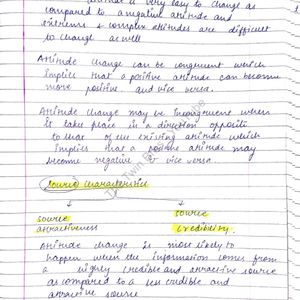 attitude is very easy to change as
compared to a negative attitude and
extreme & complex attitudes are difficult
to change as well
Attitude change can be congruent which
implies that a positive attitude can become
more positive and vice versa.
Attitude change may be incongruent when
it take place in a direction opposite
to that of the existing attitude which
implies that a positive attitude may
become negative & vice versa.
source characteristic
source source
attractiveness credibility
Attitude change is more likely to
happen when the information comes from
a highly credible and attractive source
as compared to a less credible and
attractive source